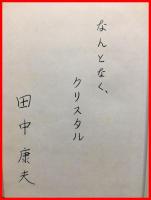 なんとなく、
クリスタル
田中康夫